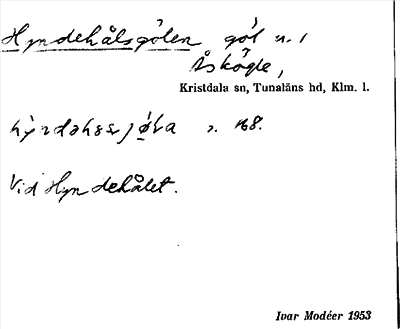 Hyndehålsgölen göl n. 1
Åskögle,
Kristdala sn, Tunaläns hd, Klm. l.
s. 168.
Vid Hyndehålet.
Ivar Modéer 1953